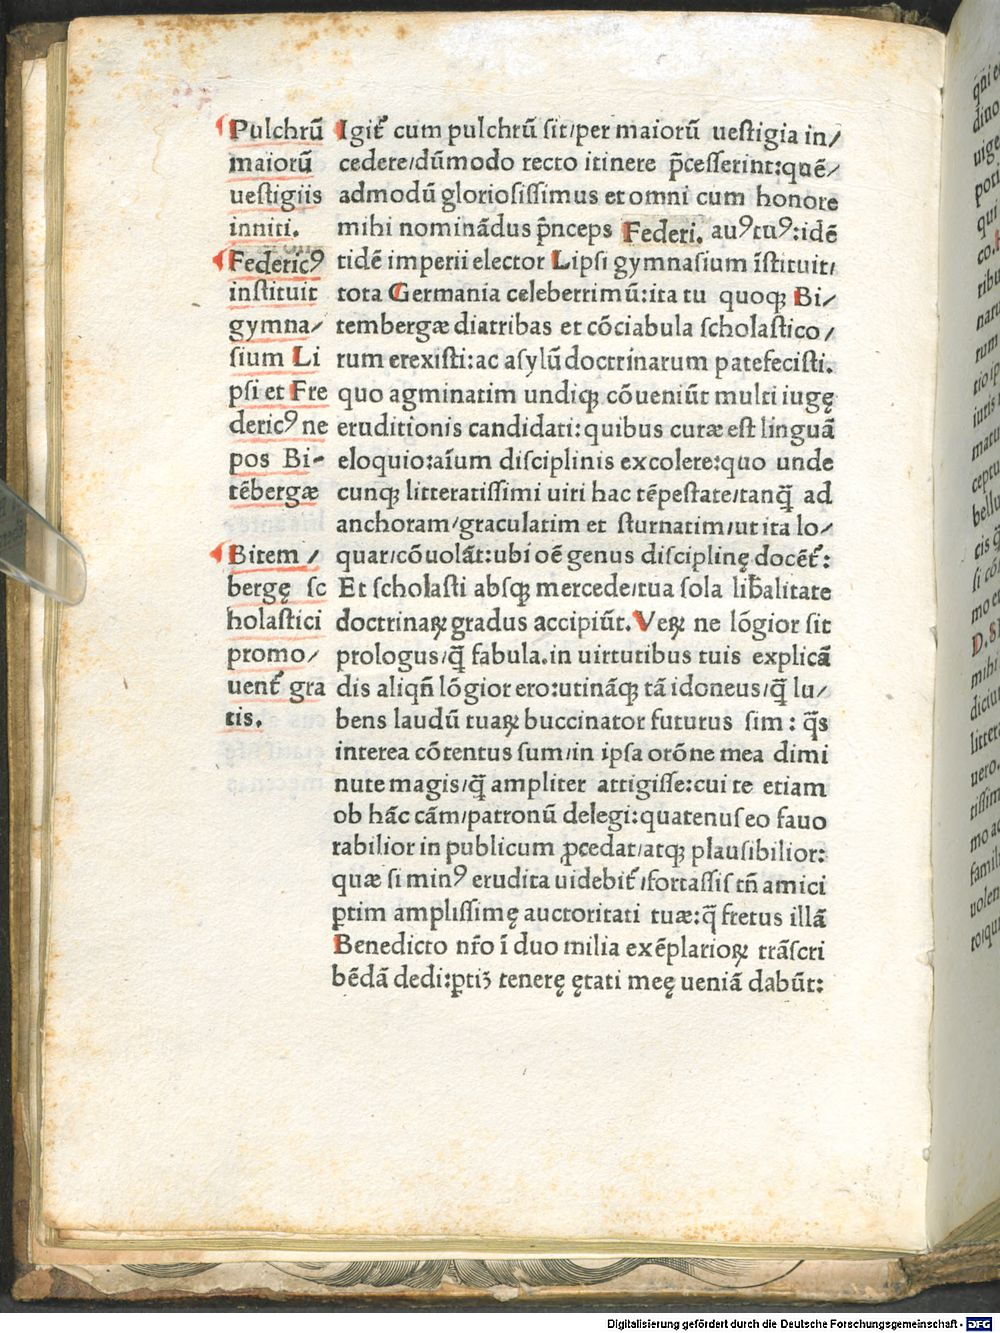 Pulchrũ
maiorũ
uestigiis
inniti.
Federicꝰ
instituit
gymna/
sium Li
psi et Fre
dericꝰ ne
pos Bi-
tẽbergæ
Bitem/
bergę sc
holastici
promo/
uent᷑ gra
tis.
Igit᷑ cum pulchrũ sit/per maiorũ uestigia in/
cedere/dũmodo recto itinere p̃cesserint:quẽ/
admodũ gloriosissimus et omni cum honore
mihi nominãdus p̃nceps Federi. auꝰtuꝰ:idẽ
tidẽ imperii elector Lipsi gymnasium ĩstituit/
tota Germania celeberrimũ:ita tu quoqꝫ Bi/
tembergæ diatribas et cõciabula scholastico/
rum erexisti:ac asylũ doctrinarum patefecisti.
quo agminatim undiqꝫ cõueniũt multi iugę
eruditionis candidati:quibus curæ est linguã
eloquio:aĩum disciplinis excolere:quo unde
cunqꝫ litteratissimi uiri hac tẽpestate/tanq̃ ad
anchoram/graculatim et sturnatim/ut ita lo/
quar/cõuolãt:ubi oẽ genus disciplinę docẽt᷑:
Et scholasti absqꝫ mercede/tua sola lib̃alitate
doctrinaꝝ gradus accipiũt. Veꝝ ne lõgior sit
prologus/q̃ fabula.in uirtutibus tuis explicã
dis aliqñ lõgior ero:utinãqꝫ tã idoneus/q̃ lu/
bens laudũ tuaꝝ buccinator futurus sim: q̃s
interea cõtentus sum/in ipsa orõne mea dimi
nute magis/q̃ ampliter attigisse:cui te etiam
ob hãc cãm/patronũ delegi:quatenus eo fauo
rabilior in publicum ꝓcedat/atqꝫ plausibilior:
quæ si minꝰ erudita uidebit᷑/fortassis tñ amici
ꝑtim amplissimę auctoritati tuæ:q̃ fretus illã
Benedicto nr̃o ĩ duo milia exẽplarioꝝ trãscri
bẽdã dedi:ꝑtiꝫ tenerę ętati meę ueniã dabũt:
Digitalisierung gefördert durch die Deutsche Forschungsgemeinschaft - DFG